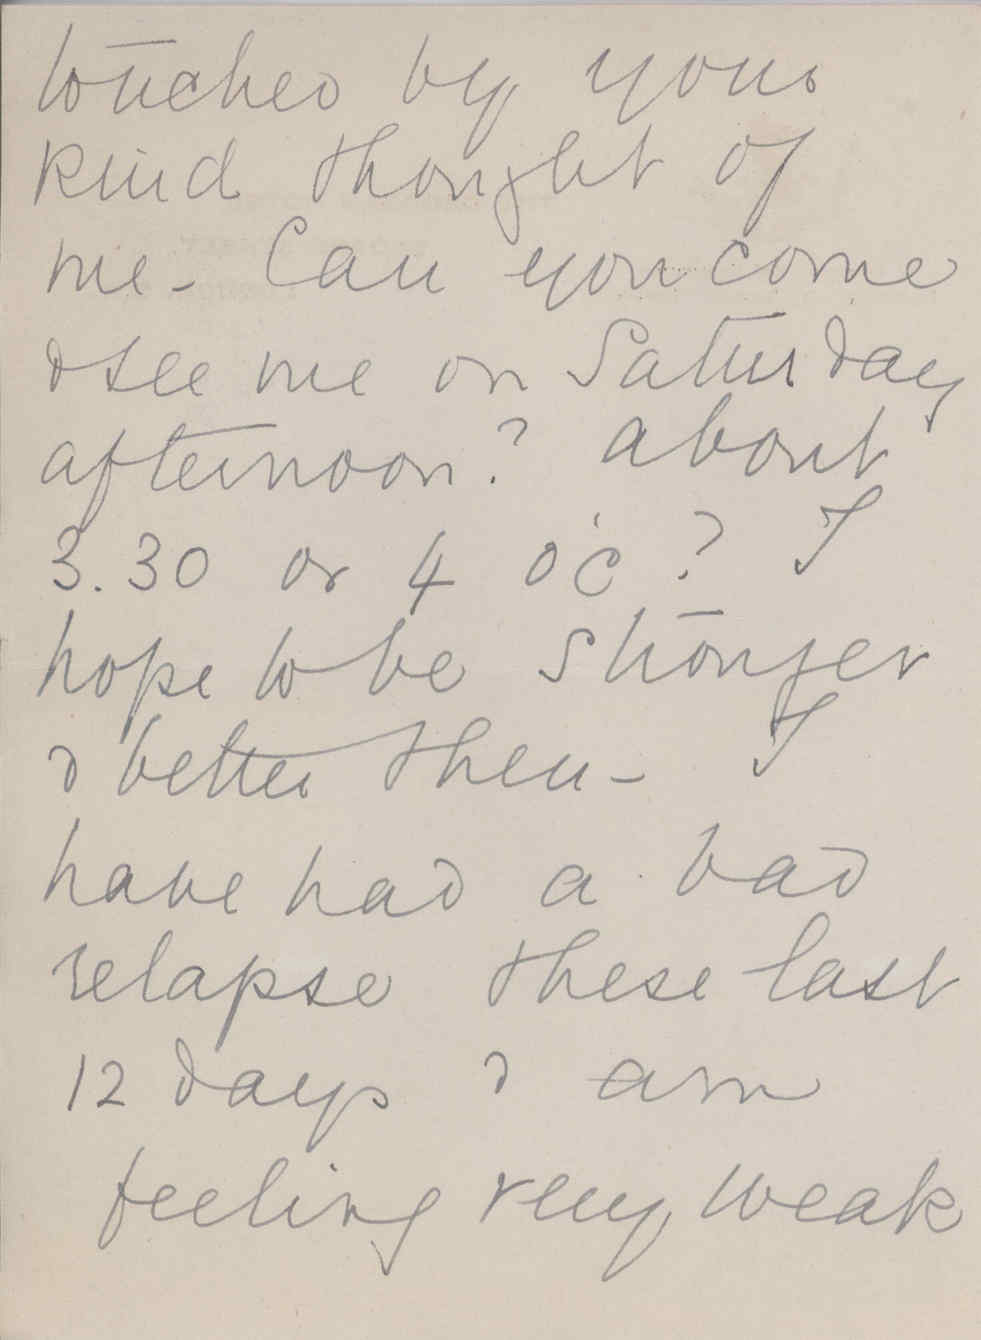 touched by your
kind thought of
me - Can you come
& see me on Saturday
afternoon? about
3.30 or 4 o'c? I
hope to be stronger
& better then - I
have had a bad
relapse these last
12 days & am
feeling very weak